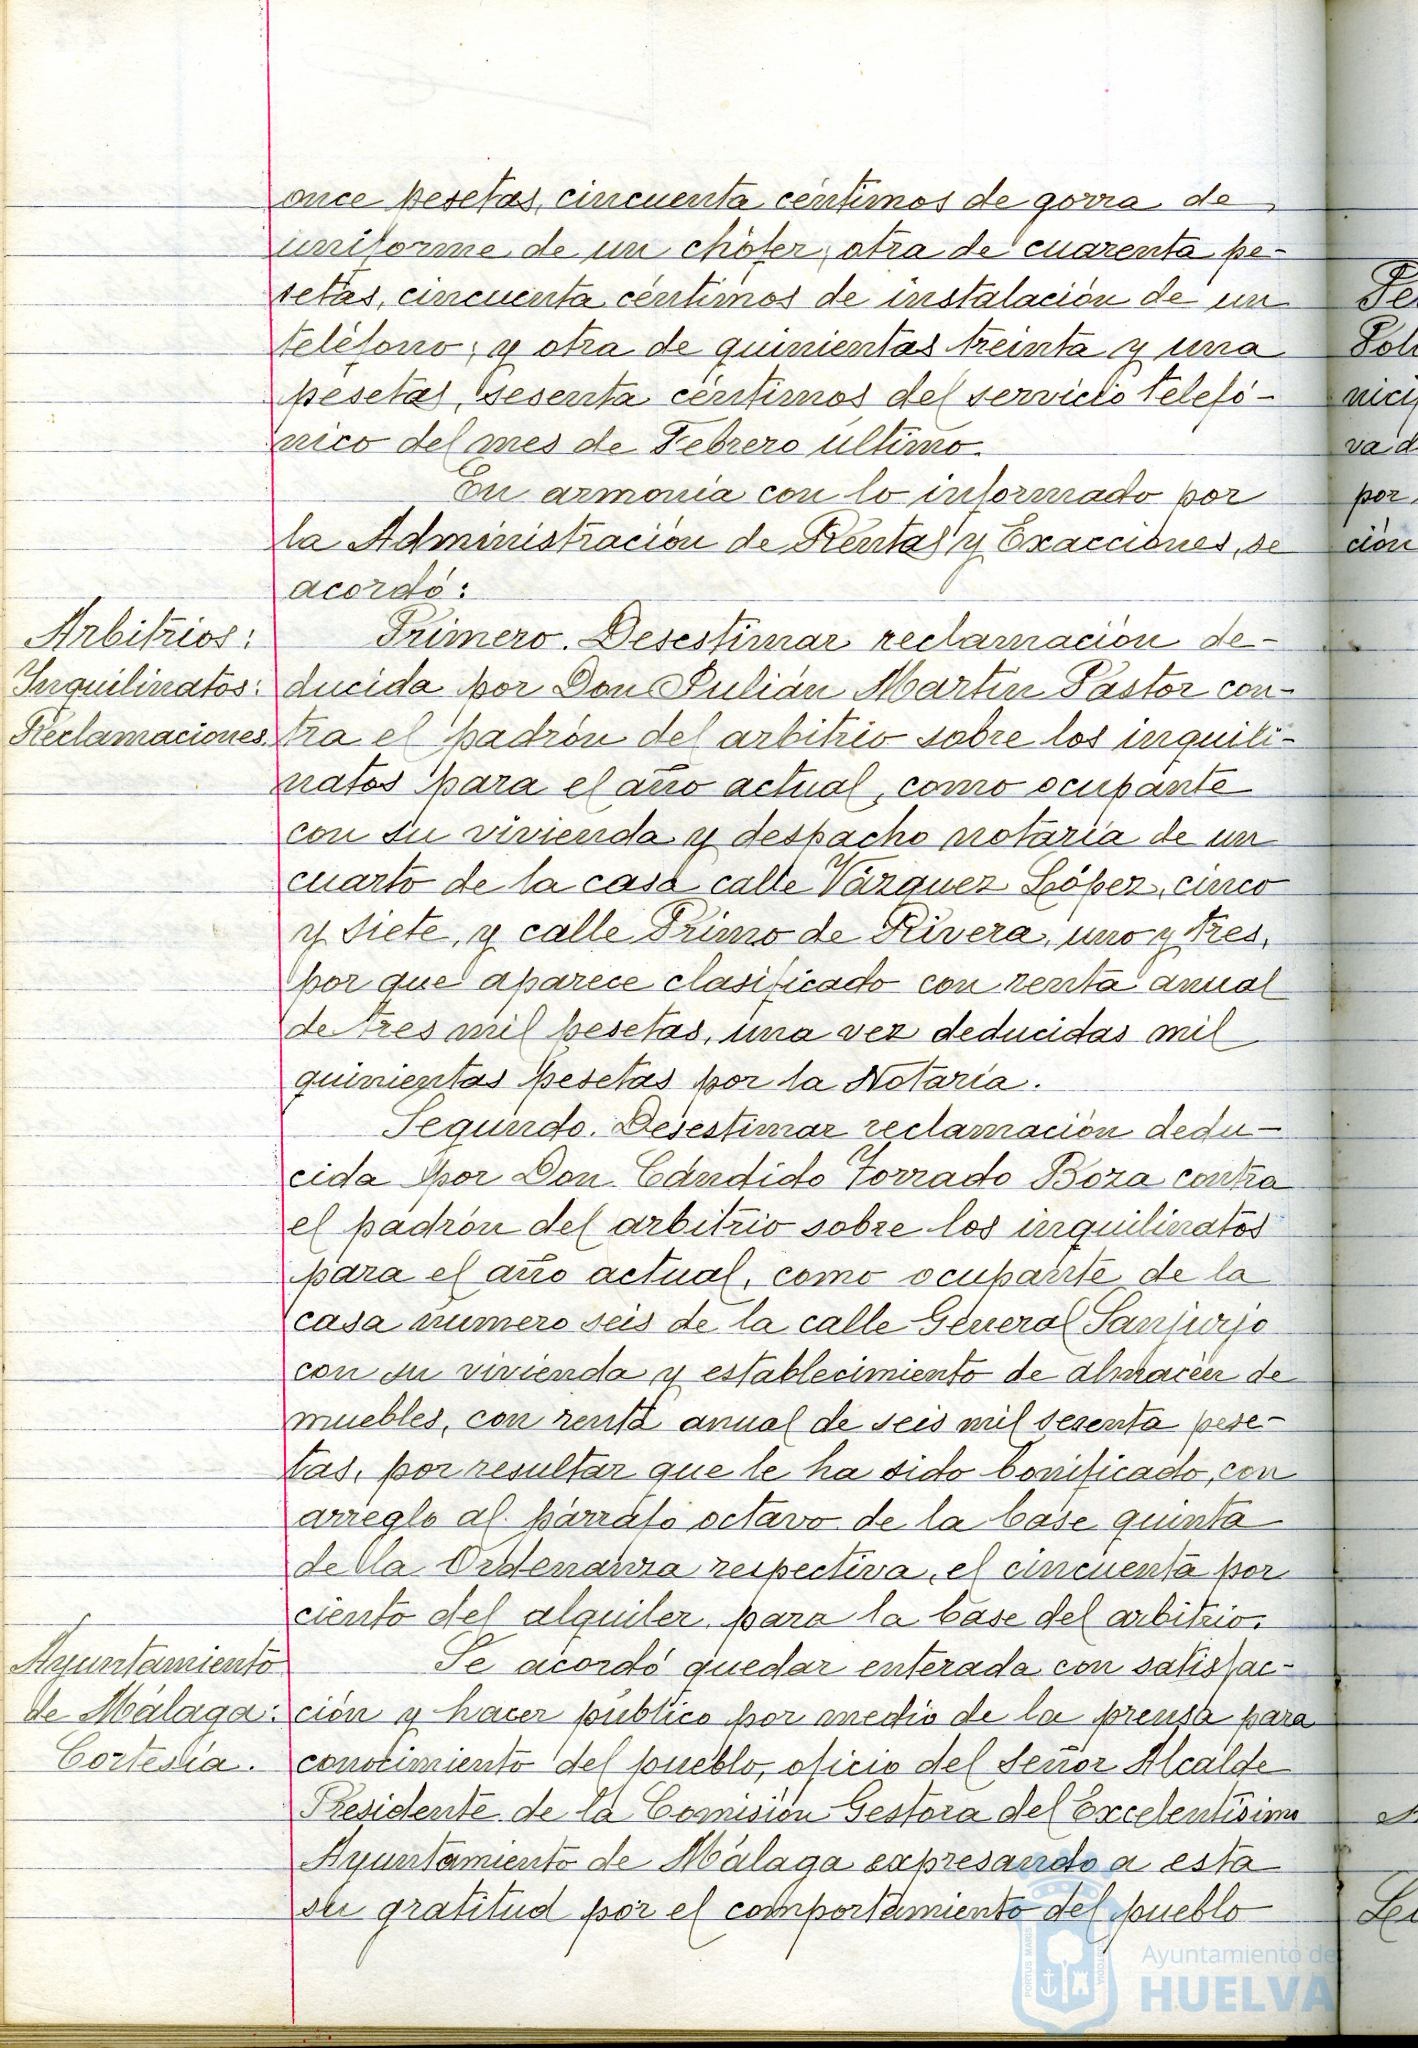 once pesetas, cincuenta céntimos de gorra de
uniforme de un chófer; otra de cuarenta pe-
setas, cincuenta céntimos de instalación de un
teléfono; y otra de quinientas treinta y una
pesetas, sesenta céntimos del servicio telefó-
nico del mes de Febrero último.
En armonía con lo informado por
la Administración de Rentas y Exacciones, se
acordó:
Arbitrios:
Inquilinatos:
Reclamaciones.
Primero. Desestimar reclamación de-
ducida por Don Julián Martín Pastor con-
tra el padrón del arbitrio sobre los inquili-
natos para el año actual, como ocupante
con su vivienda y despacho notaría de un
cuarto de la casa calle Vázquez López, cinco
y siete, y calle Primo de Rivera, uno y tres,
por que aparece clasificado con renta anual
de tres mil pesetas, una vez deducidas mil
quinientas pesetas por la Notaría.
Segundo. Desestimar reclamación dedu-
cida por Don Cándido Forrado Boza contra
el padrón del arbitrio sobre los inquilinatos
para el año actual, como ocupante de la
casa número seis de la calle General Sanjurjo
con su vivienda y establecimiento de almacén de
muebles, con renta anual de seis mil sesenta pese-
tas, por resultar que le ha sido bonificado, con
arreglo al párrafo octavo de la base quinta
de la Ordenanza respectiva, el cincuenta por
ciento del alquiler para la base del arbitrio.
Ayuntamiento
de Málaga:
Cortesía.
Se acordó quedar enterada con satisfac-
ción y hacer público por medio de la prensa para
conocimiento del pueblo, oficio del Señor Alcalde
Presidente de la Comisión Gestora del Excelentísimo
Ayuntamiento de Málaga expresando a esta
su gratitud por el comportamiento del pueblo
Ayuntamiento de
HUELVA
nici
va d
por
ción